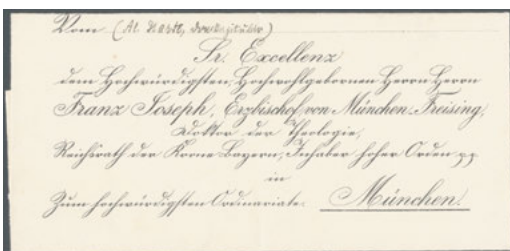 Vom
Sr. Excellenz
dem Hochwürdigsten, Hochwohlgebornen Herrn Herrn
Franz Joseph, Erzbischof von München-Freising,
Doktor der Theologie,
Reichsrath der Krone Bayern, Inhaber hoher Orden pp.
in
Zum hochwürdigsten Ordinariate. München.